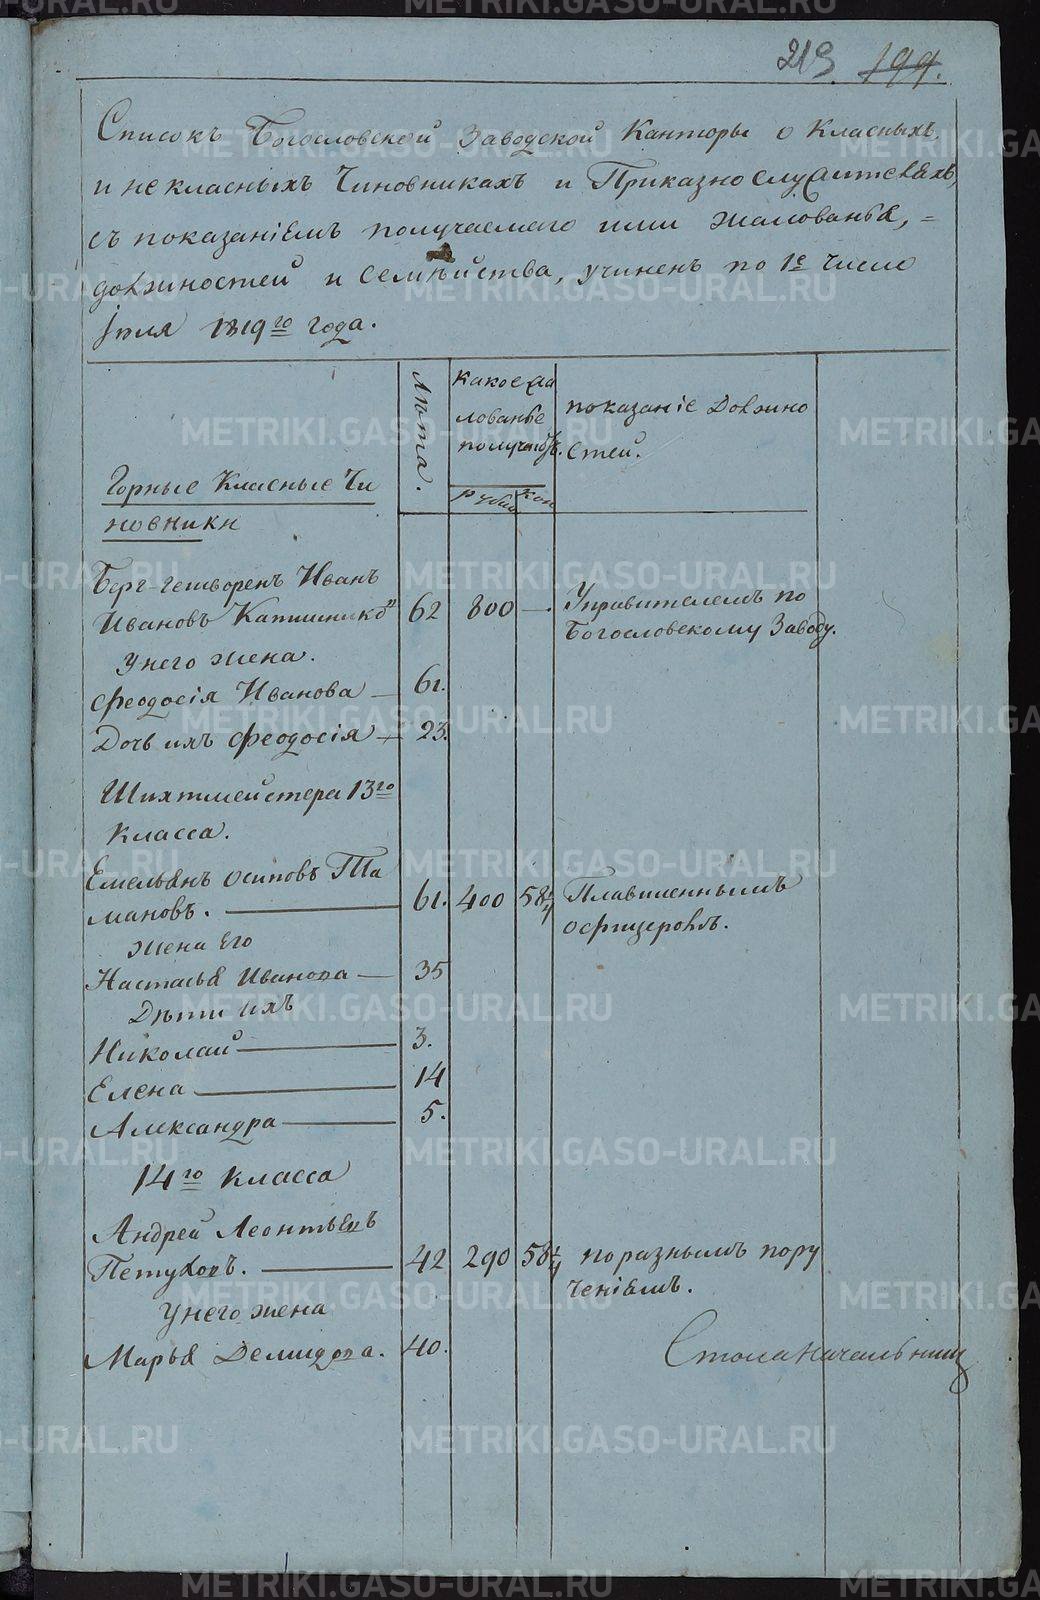 219. 199.
Списокъ Богословской Заводской Канторы о Класныхъ
и некласныхъ Чиновникахъ и Приказнослужителяхъ,
съ показаніемъ получаемаго ими жалованья, =
должностей и Семѣйства, учиненъ по 1е Число
Іюля 1819го года.
Горные Класные Чи
новники
Лѣта.
какое жа
лованье
получаютъ.
рубли
коп
показаніе Должно
стей.
Берг-гешворенъ Иванъ
Ивановъ 62 800 — . Управителемъ по
Богословскому Заводу.
У него жена.
Феодосія Иванова — 61.
Дочь ихъ Феодосія — 23.
Шихтмейстера 13го
Класса.
Емельянъ осиповъ Та
мановъ. — 61. 400 58¼ Плавиленнымъ
офицеромъ.
Жена Его
Настасья Иванова — 35
Дѣти ихъ
Николай — 3.
Елена — 14
Александра — 5.
14го Класса
Андрей Леонтьевъ
Петуховъ. — 42 290 58¼ по разнымъ пору
ченіемъ.
У него жена
Марья Демидова. 40.
Столаначальник
METRIKI.GASO-URAL.RU